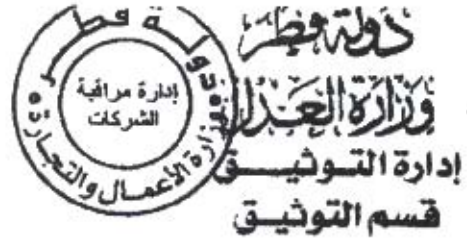 دولة قطر
وزارة العدل
إدارة التوثيق
قسم التوثيق
دولة قطر
وزارة الأعمال والتجارة
إدارة مراقبة
الشركات